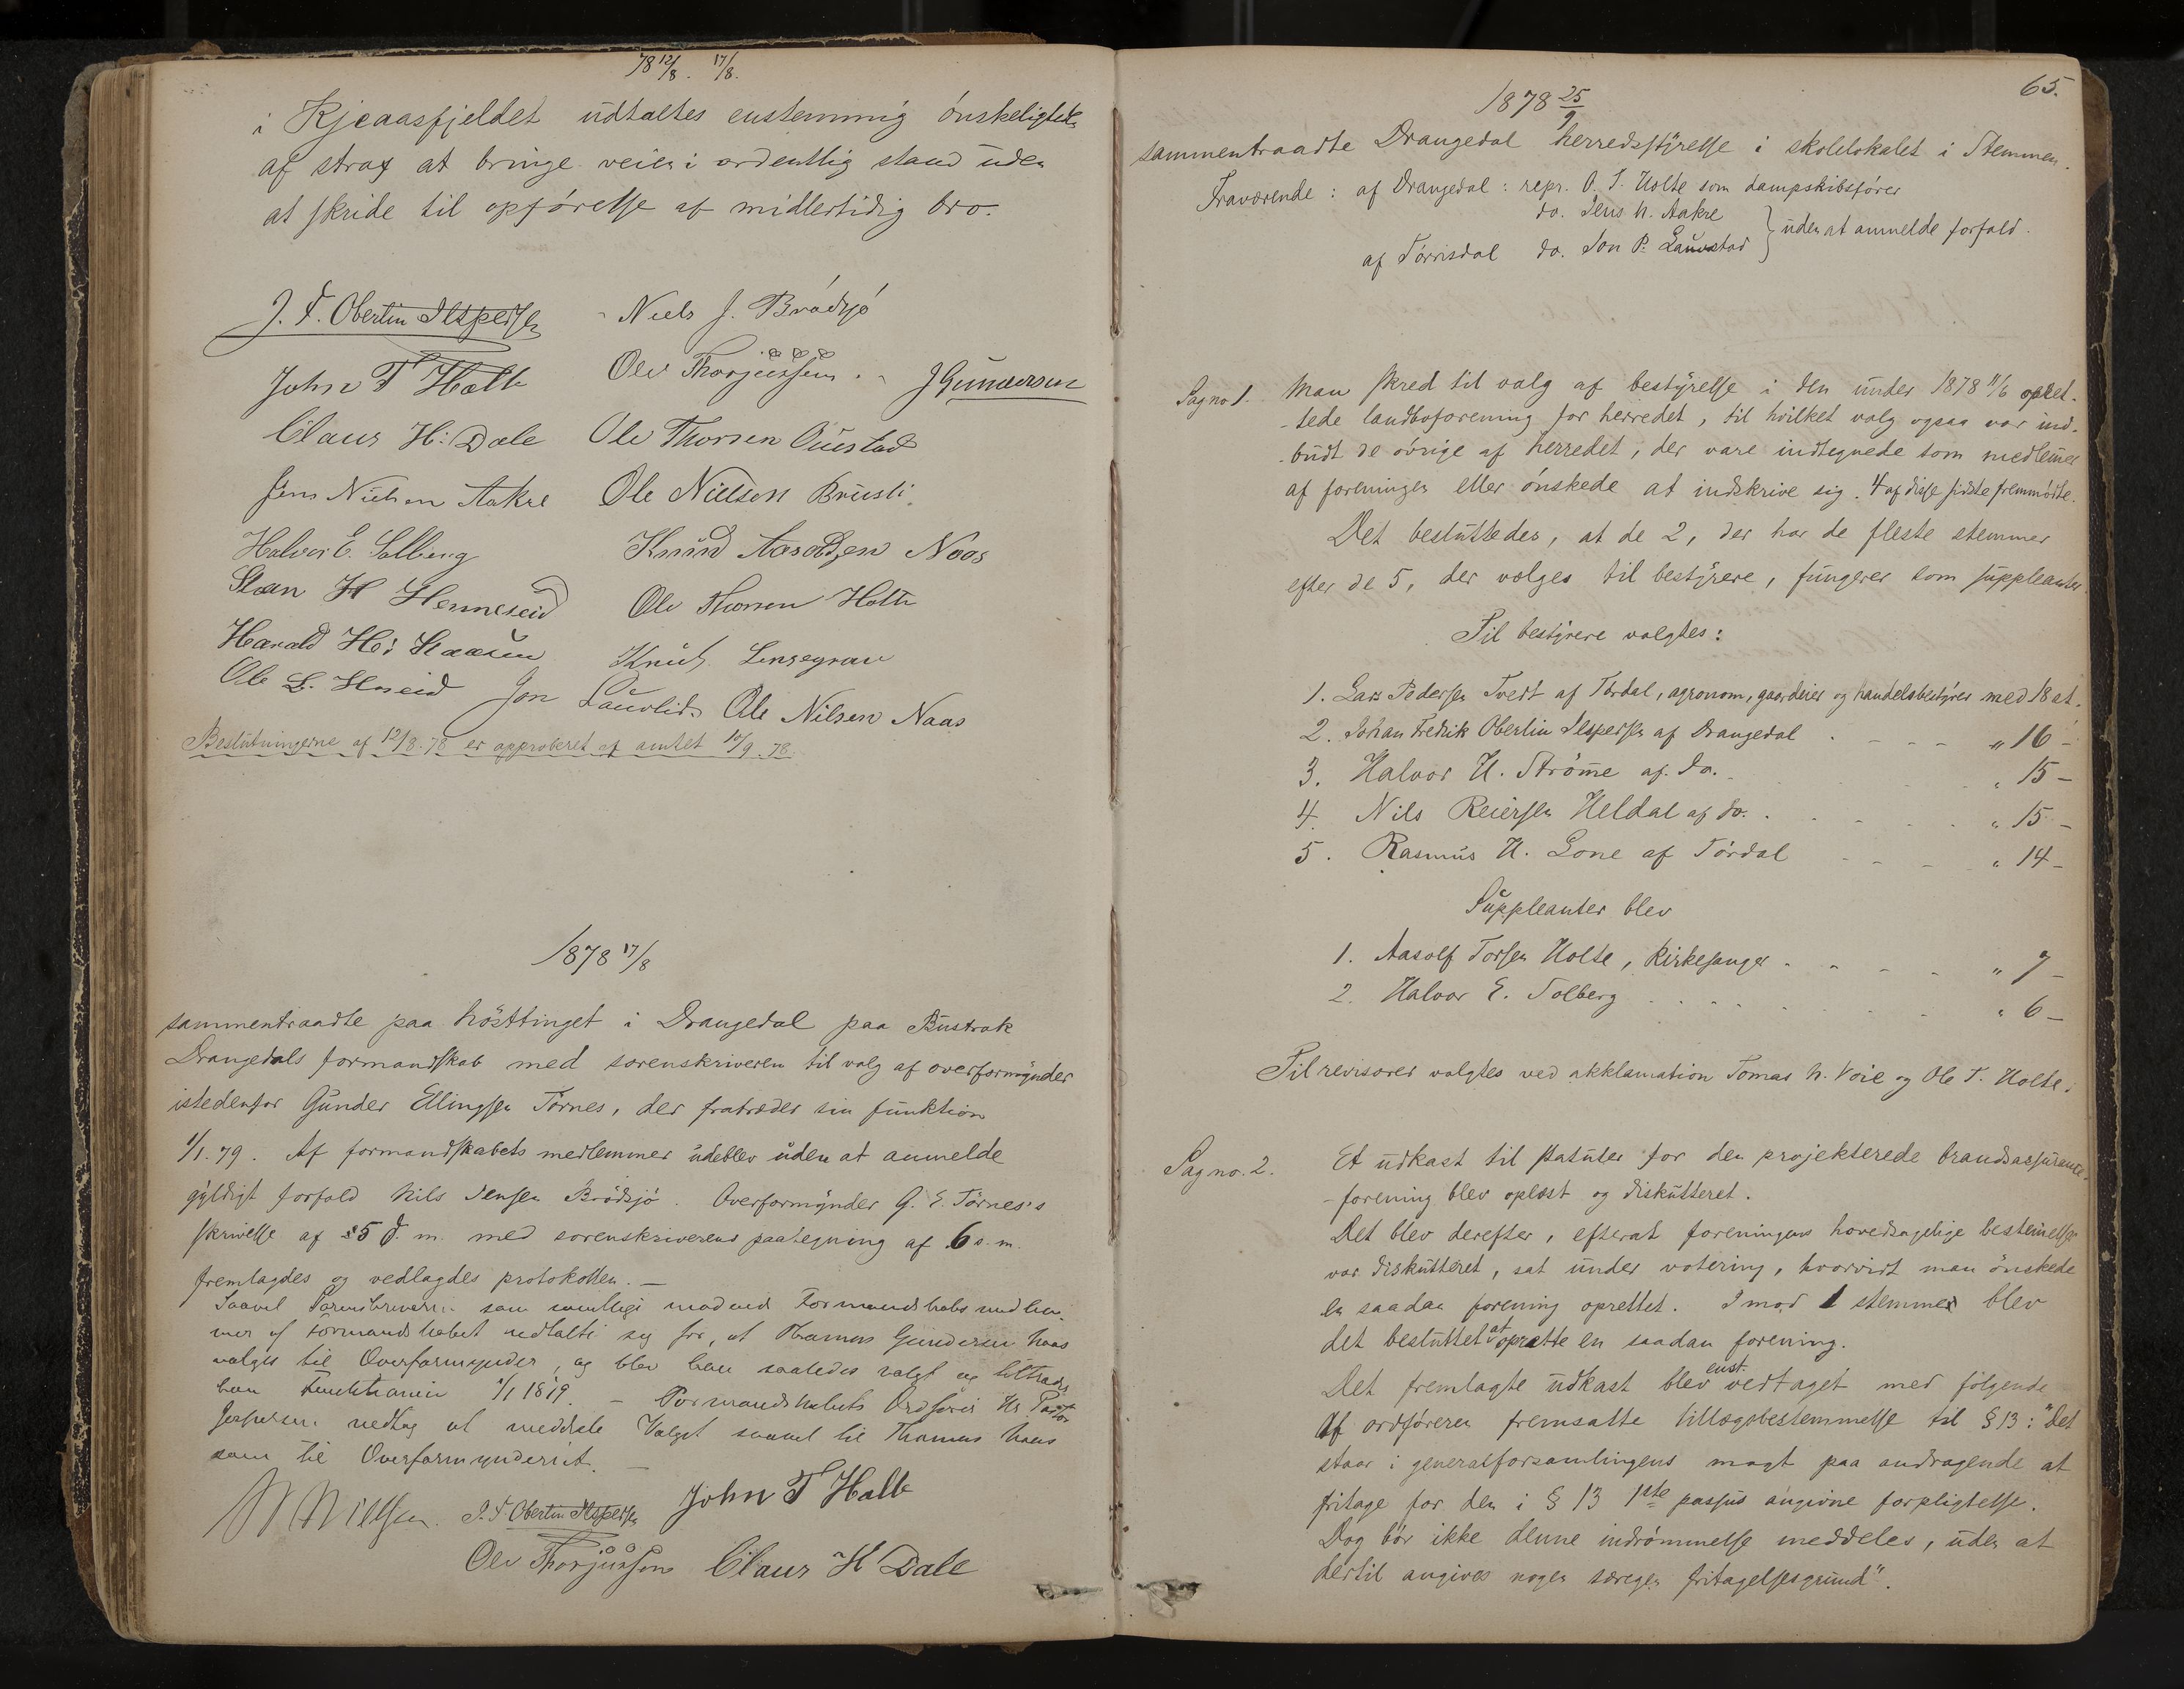 78 12/8. 17/8.
i Kjeaasfjeldet udtaltes enstemmig ønskelighed
af strax at bringe veien i ordentlig stand uden
at skride til opførelse af midlertidig bro.
J. F. Oberlin Jespersen Niels J. Brødsjø
John T Holte Olev Thorjussen J Gundersen
Claus H: Dale Ole Thorsen Ouestad
Jens Nielsen Aakre Ole Nielsen Brusli.
Halvor E. Solberg Knud Aasoldsen Naas
Stean H Henneseid Ole Thorsen Holte
Harald H: Knut
Ole L. Jon Lauvlid Ole Nilsen Naas
Beslutningerne af 12/8.78 er approberet af amtet 10/9.78.
1878 17/8
sammentraadte paa høsttinget i Drangedal paa Bustrak
Drangedals formandskab med sorenskriveren til valg af overformynder
istedenfor Gunder Ellingsen Tørnes, der fratræder sin funktion
1/1.79. Af formandskabets medlemmer udeblev uden at anmelde
gyldigt forfald Nils Jensen Brødsjø. Overformynder G. E. Tørnes's
skrivelse af 5 d. m. med sorenskriverens paategning af 6 s. m.
fremlagdes og vedlagdes protokollen. —
Saavel Sorenskriveren som samtlige mødende Formandskabs medlem-
mer af Formandskabet udtalte sig for, at Thomas Gundersen Naas
valges til Overformynder, og blev han saaledes valgt og tiltræder
han Funktionen 1/1 1879. — Formandskabets Ordfører Hr. Pastor
Jespersen vedtog at meddele Valget saavel til Thomas Naas
som til Overformynderiet. —
N Nielsen. J. F. Oberlin Jespersen John T Holte
Olev Thorjussen Claus H Dale
65.
1878 25/9
sammentraadte Drangedal herredsstyrelse i skolelokalet i Stemmen.
Fraværende: af Drangedal: repr. O. T. Holte som dampskibsfører
do. Jens N. Aakre
af Tørrisdal do. Jon P. Lauvstad } uden at anmelde forfald.
Sag no 1. Man skred til valg af bestyrelse i den under 1878 11/6 opret-
-tede landboforening for herredet, til hvilket valg ogsaa var ind-
-budt de øvrige af herredet, der vare indtegnede som medlemmer
af foreningen eller ønskede at indskrive sig. 4 af disse sidste fremmødte.
Det besluttedes, at de 2, der har de fleste stemmer
efter de 5, der vælges til bestyrere, fungerer som suppleanter.
Til bestyrere valgtes:
1. Lars Pedersen Tvedt af Tørdal, agronom, gaardeier og handelsbestyrer med 18 st.
2. Johan Fredrik Oberlin Jespersen af Drangedal . - - - „ 16 -
3. Halvor H. Strømme af do. „ 15 -
4. Nils Reiersen Heldal af do. „ 15 -
5. Rasmus H. Lone af Tørdal - - - „ 14 -
Suppleanter blev
1. Aasolf Torsen Holte, kirkesanger - - - - „ 7 -
2. Halvor E. Solberg „ 6 -
Til revisorer valgtes ved akklamation Tomas N. Voie og Ole T. Holte.
Sag no. 2. Et udkast til statuter for den projekterede brandassurance-
-forening blev oplæst og diskutteret.
Det blev derefter, efterat foreningens hovedsagelige bestemmelser
var diskutteret, sat under votering, hvorvidt man ønskede
en saadan forening oprettet. Imod 1 stemme blev
det besluttet at oprætte en saadan forening.
Det fremlagte udkast blev enst. vedtaget med følgende
af ordføreren fremsatte tillægsbestemmelse til § 13: "Det
staar i generalforsamlingens magt paa andragende at
fritage for den i § 13 1ste passus angivne forpligtelse.
Dog bør ikke denne indrømmelse meddeles, uden at
dertil angives nogen særegen fritagelsesgrund".